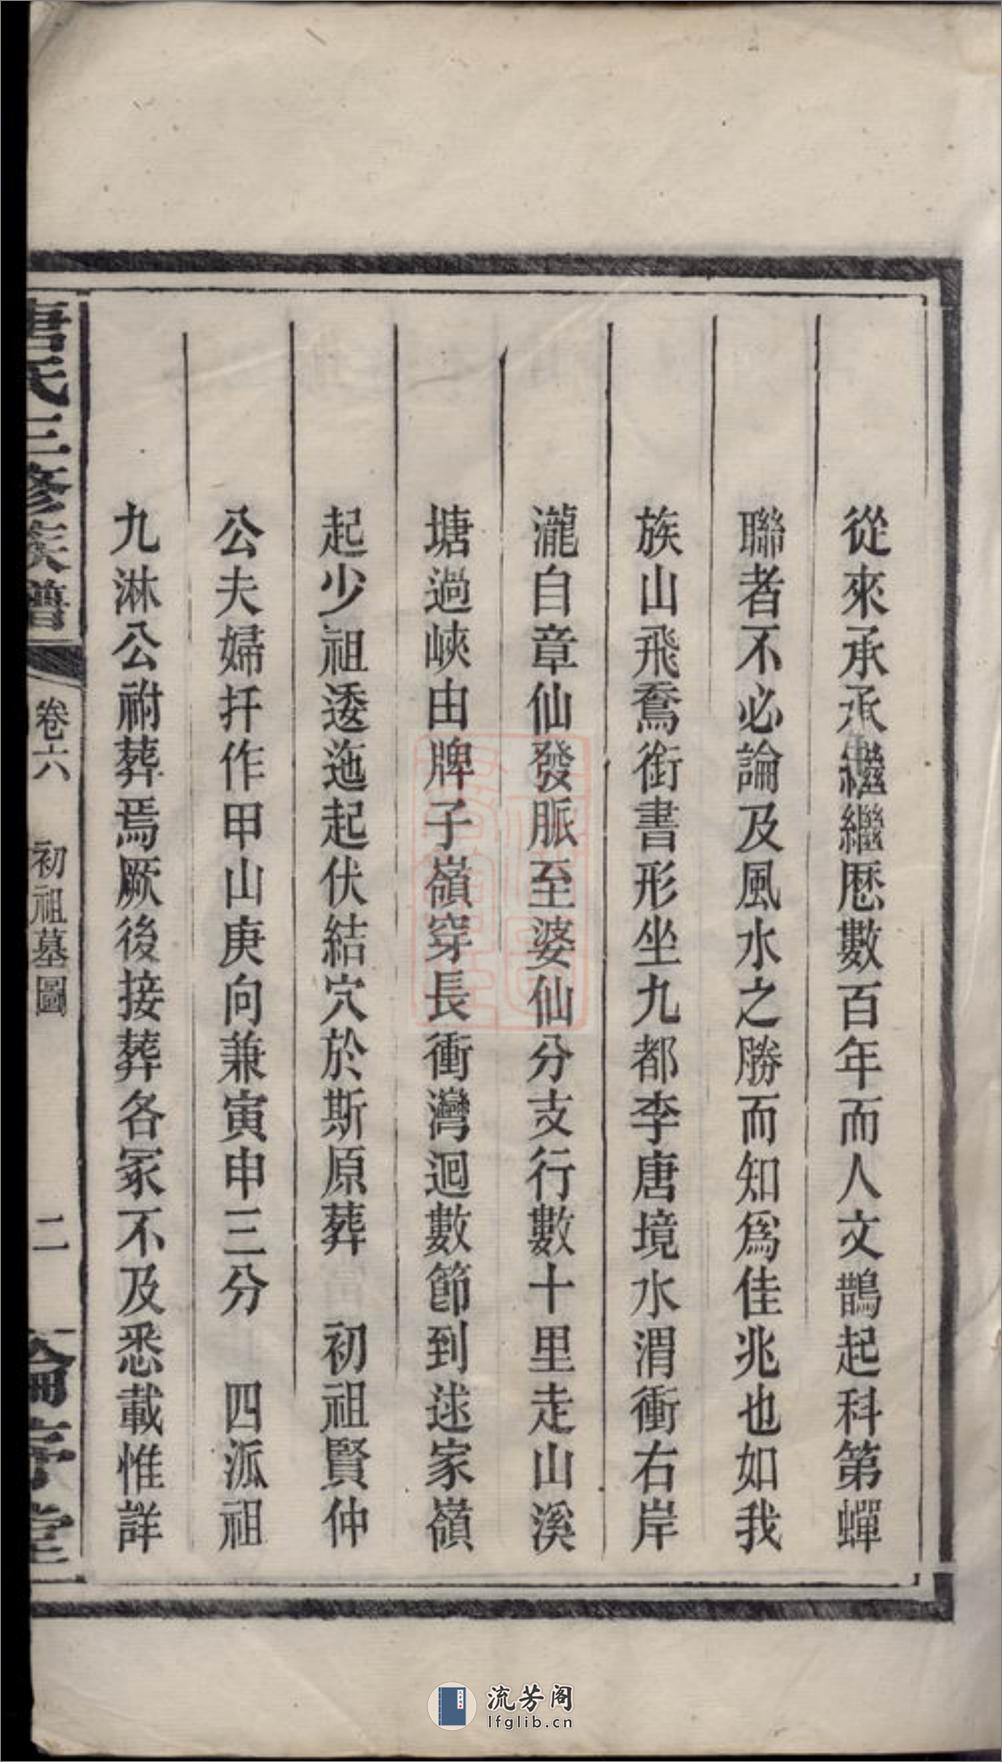 從來承承繼繼歴數百年而人文鵲起科第蟬
聯者不必論及風水之勝而知爲佳兆也如我
族山飛鴌銜書形坐九都李唐境水渭衝右岸
瀧自章仙發脈至婆仙分支行數十里走山溪
塘過峽由牌子嶺穿長衝灣迴數節到逑家嶺
起少祖逶迤起伏結穴於斯原葬　初祖賢仲
公夫婦扞作甲山庚向兼寅申三分　四派祖
九淋公祔葬焉厥後接葬各冢不及悉載惟詳
唐氏三修族譜
卷六
初祖墓圖
二
倫序堂
流芳阁
lfglib.cn